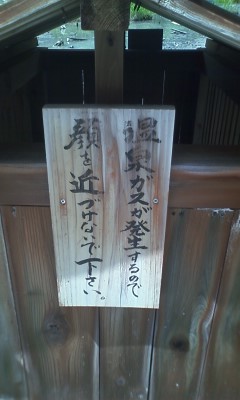 温泉ガスが発生するので
顔を近づけないで下さい。